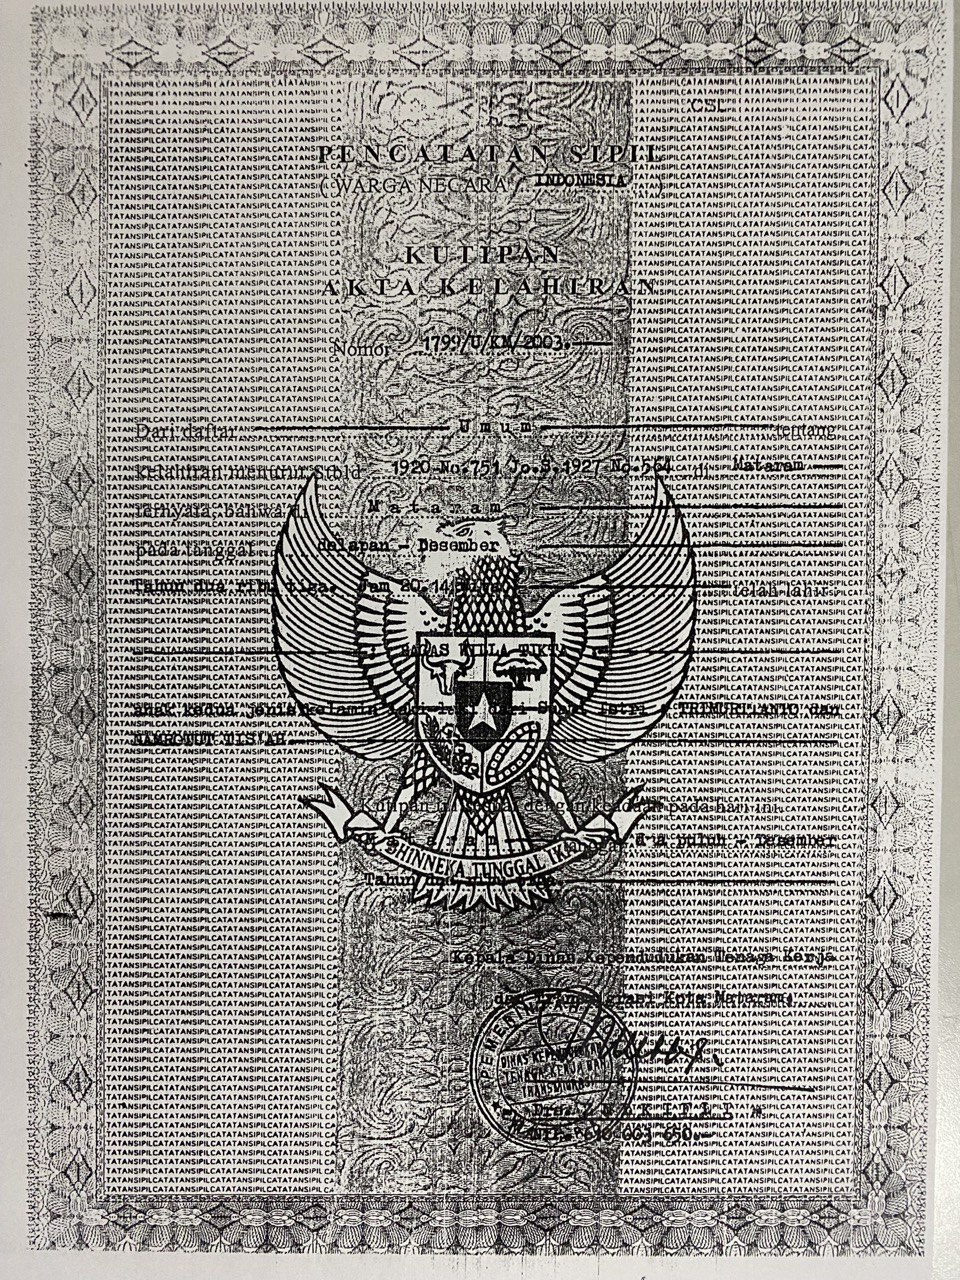 CSL
PENCATATAN SIPIL
( WARGA NEGARA INDONESIA )
KUTIPAN
AKTA KELAHIRAN
Nomor 1799/U/KM/2003.
Dari daftar Umum tentang
kelahiran menurut Stbld 1920 No.751 Jo.S.1927 No.564 di Mataram
ternyata, bahwa di Mataram
pada tanggal delapan - Desember
Tahun dua ribu tiga. Jam telah lahir
: BAGAS
anak kedua jenis kelamin laki-laki dari Suami istri : dan
Kutipan ini sesuai dengan keadaan pada hari ini.
tanggal dua puluh - Desember
Tahun dua ribu tiga.
BHINNEKA TUNGGAL IKA
Kepala Dinas Kependudukan Tenaga Kerja
dan Transmigrasi Kota Mataram,
PEMERINTAH
DINAS KEPENDUDUKAN
TENAGA KERJA DAN
TRANSMIGRASI
Drs. ZULKIFLI
NIP. 610 003 650.-